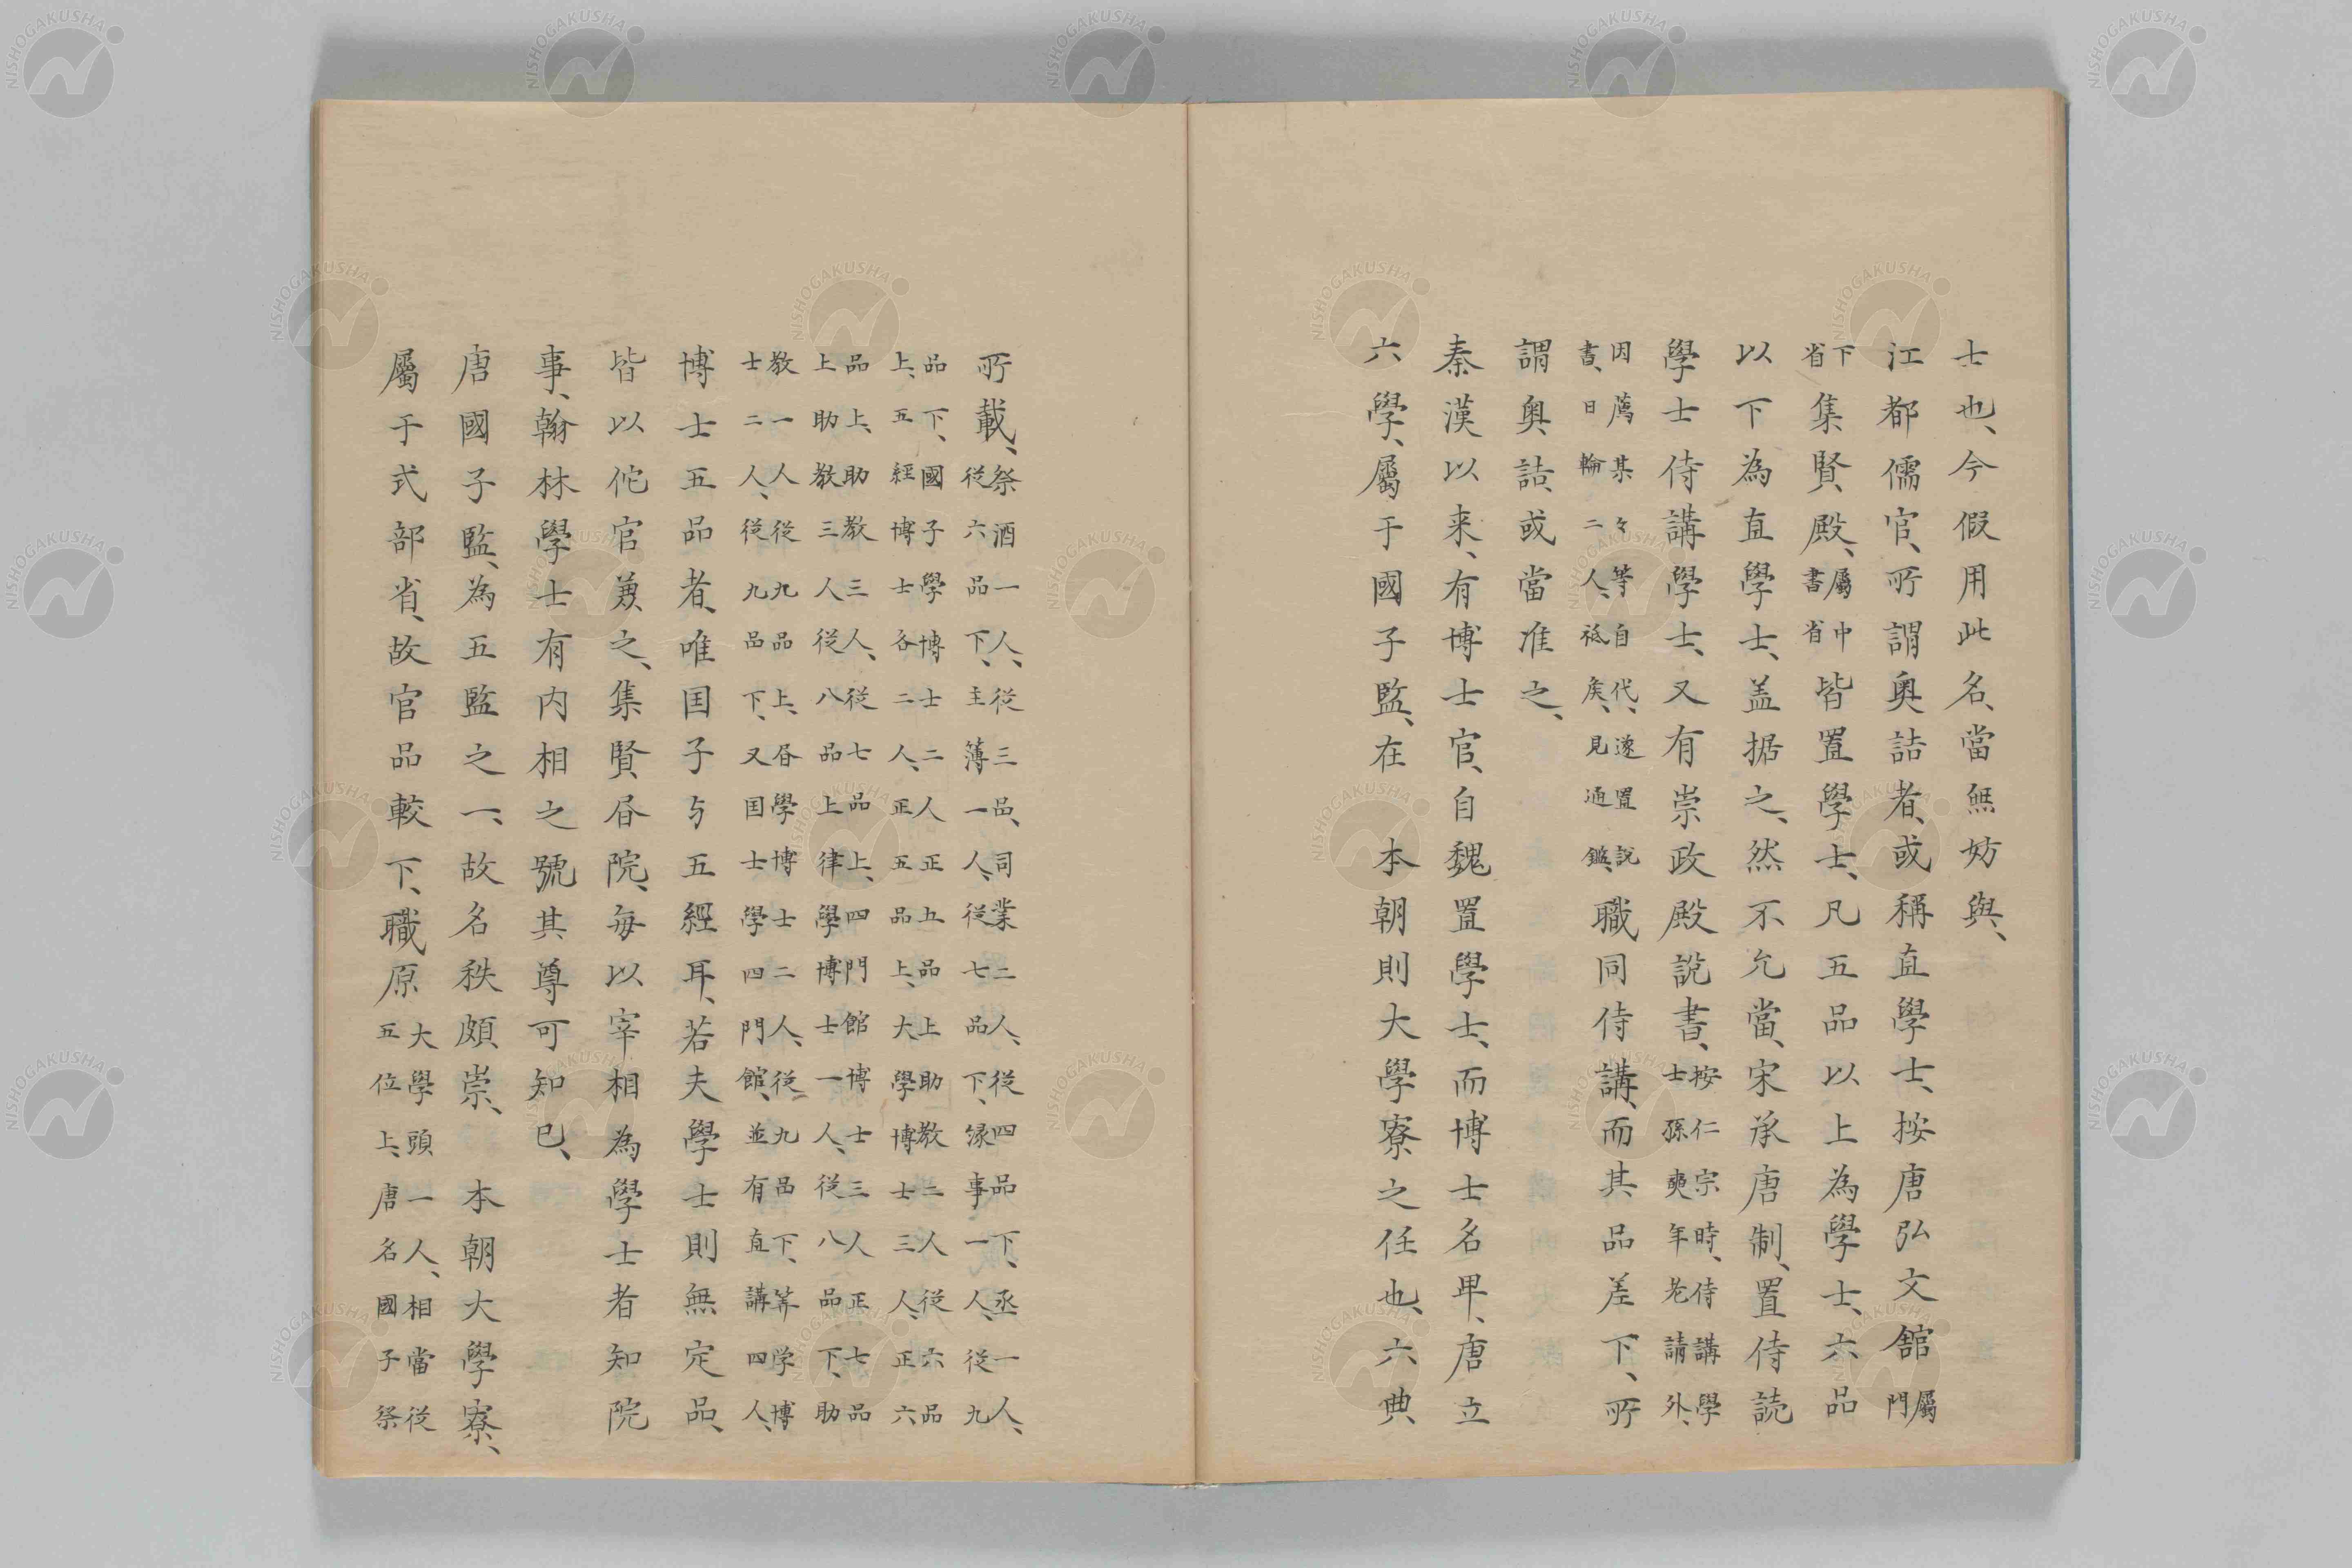 士也、今假用此名、當無妨與、
江都儒官、所謂奧詰者、或稱直學士、按唐弘文舘屬門
下省集賢殿、屬中書省皆置學士、凡五品以上為學士、六品
以下為直學士、盖据之、然不允當、宋承唐制、置侍読
學士侍講學士、又有崇政殿説書、按仁宗時、侍講學士孫奭年老請外、
因薦某々等自代、遂置説書、日輪二人、祗矦、見通鑑、職同侍講、而其品差下、所
謂奧詰、或當准之、
秦漢以来、有博士官、自魏置學士、而博士名卑、唐立
六學、屬于國子監、在　本朝則大學寮之任也、六典
所載、祭酒一人、從三品、司業二人、從四品下、丞一人、從六品下、主簿一人、從七品下、録事一人、從九
品下、國子學博士二人正五品上助教二人從六品上、五經博士各二人、正五品上、大學博士三人、正六
品上、助教三人、從七品上、四門館博士三人正七品上助教三人從八品上律學博士一人、從八品下、助
教一人從九品上、昬學博士二人、從九品下、筭学博士二人、從九品下、又国士學四門館、並有直講四人、
博士五品者、唯国子与五經耳、若夫學士則無定品、
皆以佗官兼之、集賢昬院、毎以宰相為學士者知院
事、翰林學士有内相之號其尊可知已、
唐國子監、為五監之一、故名秩頗崇、　本朝大學寮、
屬于式部省、故官品較下、職原大學頭一人、相當從五位上、唐名國子祭